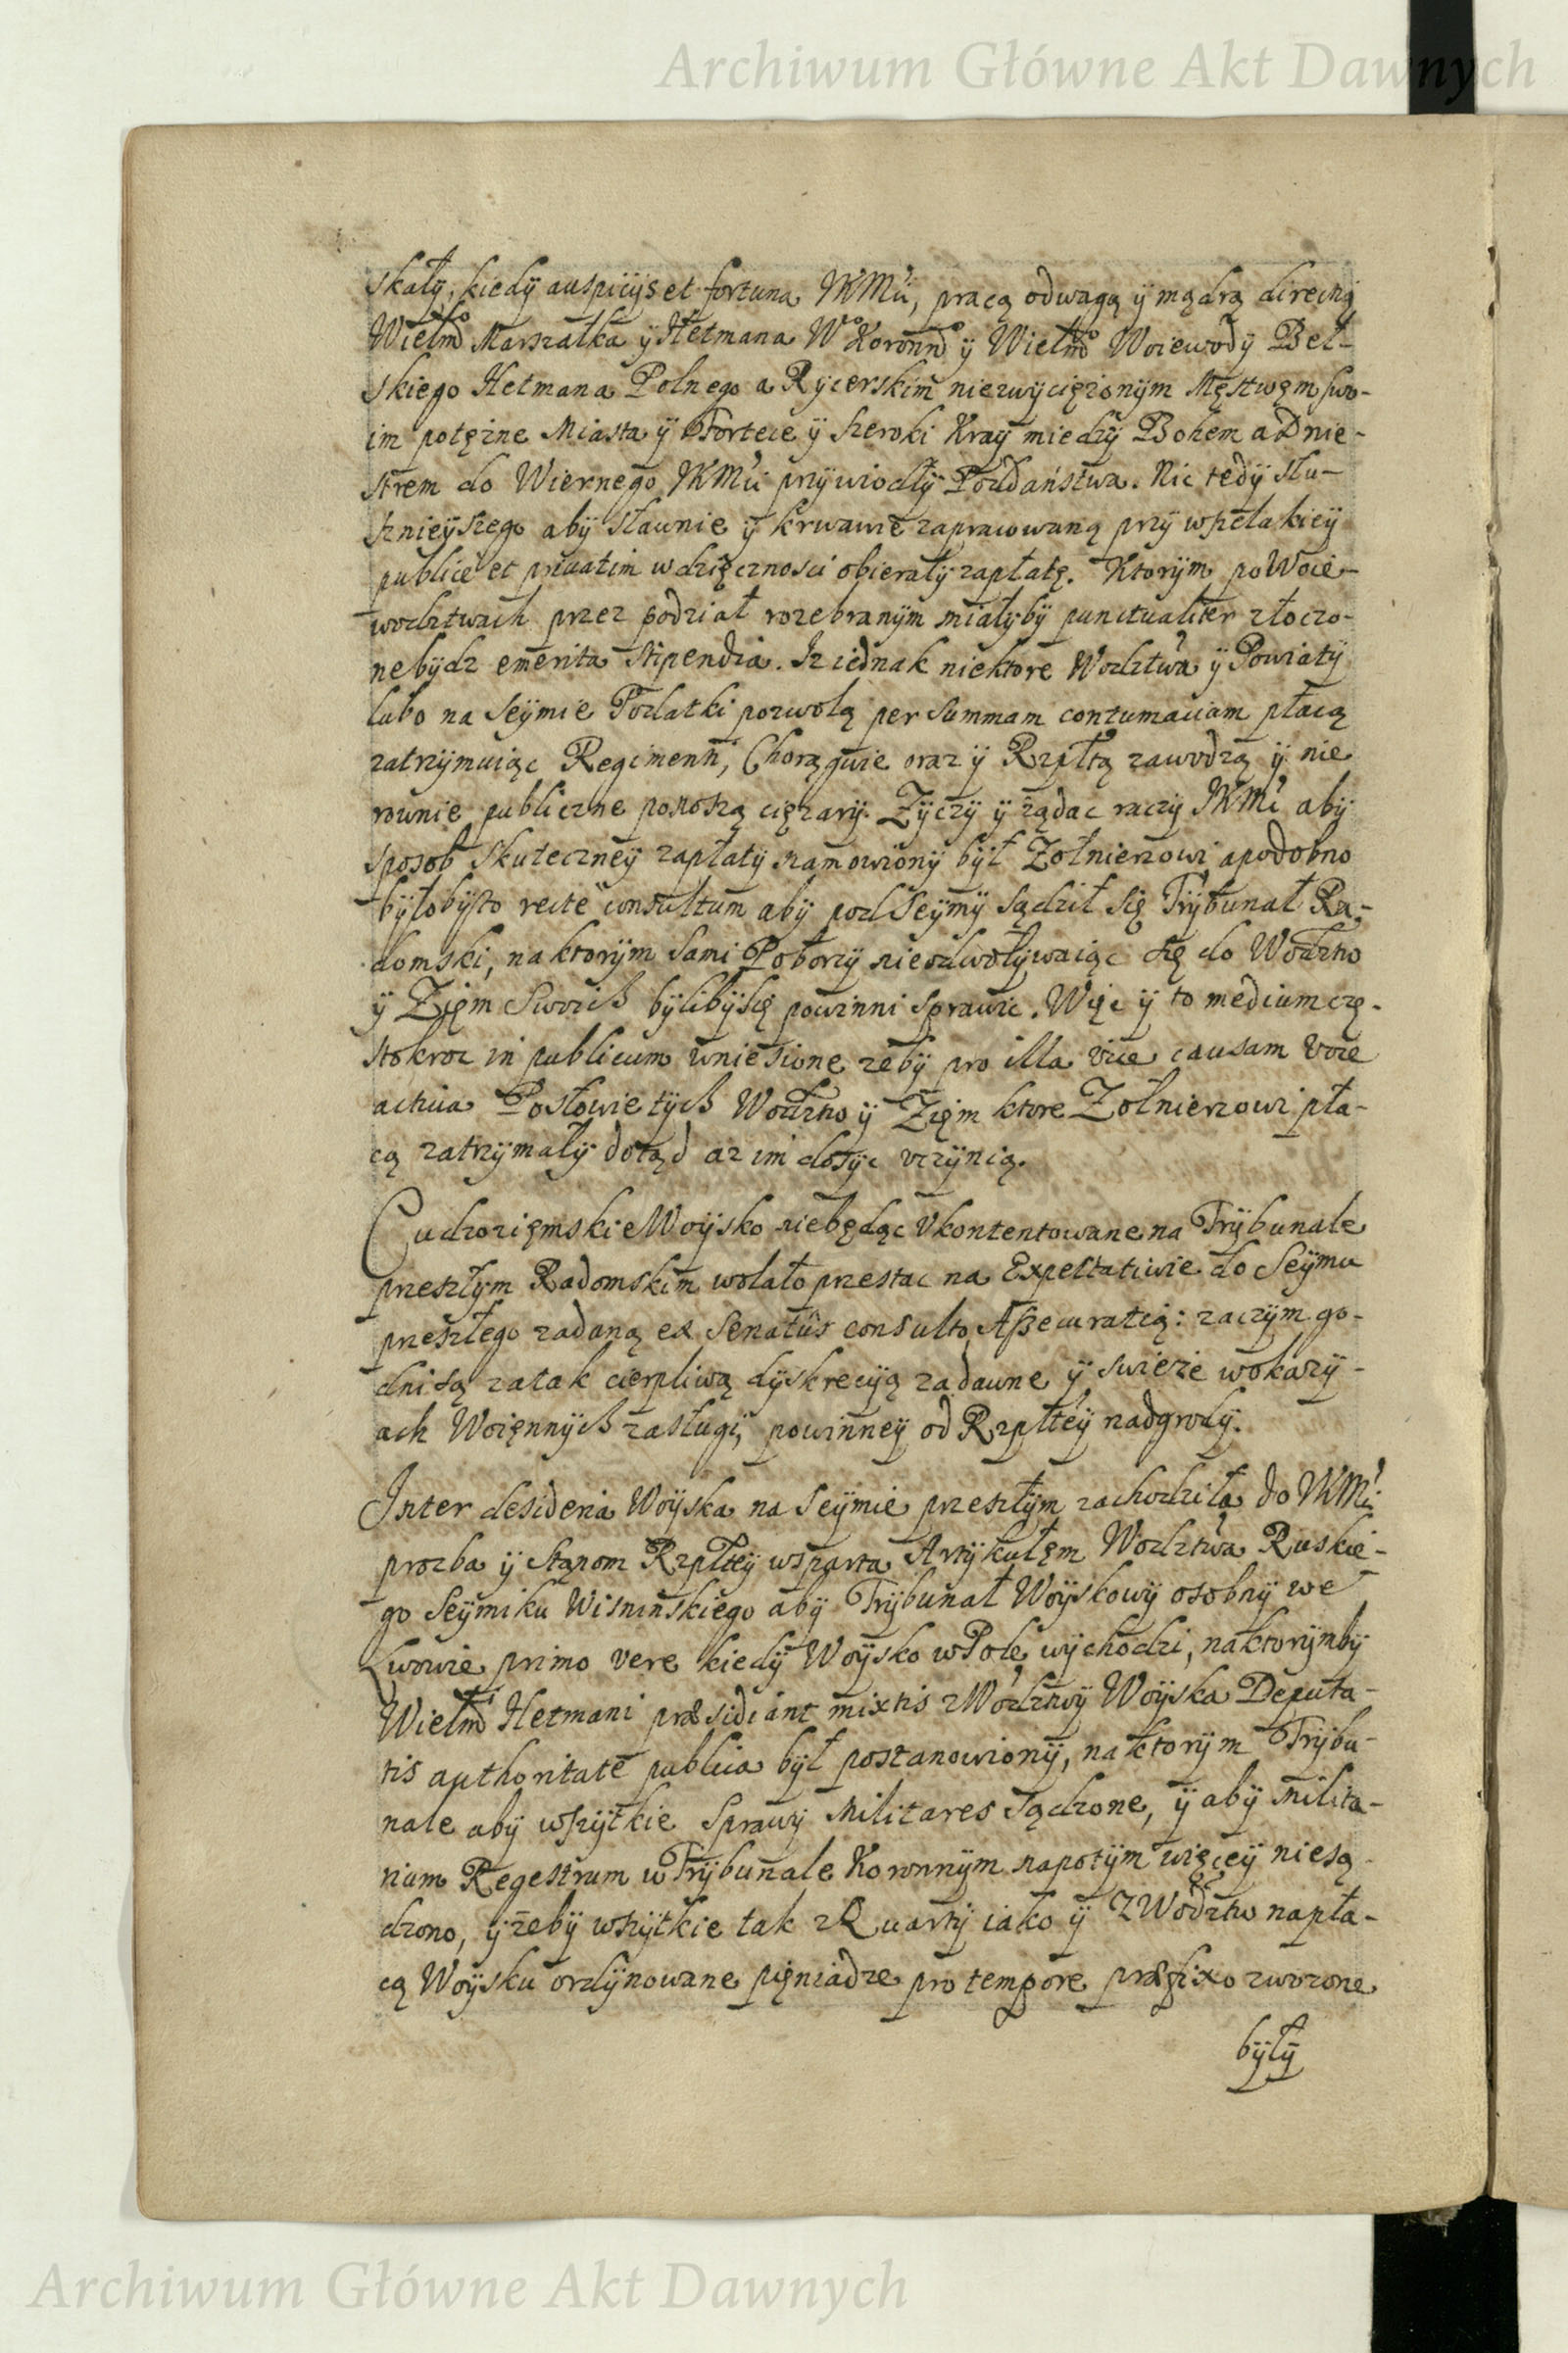 Archiwum Główne Akt Dawnych
skały, kiedÿ auspicÿs et fortuna JKMci, pracą odwagą ÿ mądrą direcną
Wielmo Marszałka ÿ Hetmana Wo Koronno ÿ Wielmo Woiewodÿ Beł-
skiego Hetmana Polnego a Rÿcerskim niezwÿcięzonÿm Męstwęm swo-
im potęzne Miasta ÿ Fortece ÿ szeroki Kraÿ miedzÿ Bohem a Dnie-
strem do Wiernego JKMci przÿwiodłÿ Poddaństwa. Nic tedÿ słu-
sznieÿszego abÿ sławnie ÿ krwawie zapracowaną przÿ wszelakieÿ
publice et priuatim wdzięcznosci obierałÿ zapłatę. Ktorÿm po Woie-
wodztwach przez podział rozebranÿm miałÿbÿ punctualiter złoczo-
ne bÿdz emerita stipendia. Iz iednak niektore Wodztwa ÿ Powiatÿ
lubo na Seÿmie Podatki pozwolą per summam contumaciam płacą
zatrzÿmuiąc Regimenti, Chorągwie oraz ÿ Rzpltą zawodzą ÿ nie
rownie publiczne ponoszą cięzarÿ. Zÿczÿ ÿ ządac raczÿ JKMć abÿ
sposob skuteczneÿ zapłatÿ namowionÿ bÿł Zołnierzowi a podobno
bÿłobÿ to recte consultum abÿ pod Seÿmÿ sądził się Trÿbunał Ra-
domski, na ktorÿm sami Poborzÿ nieodwołÿwaiąc się do Wodztw
ÿ Zięm swoich bÿlibÿ się powinni sprawic. Więc ÿ to medium czę-
stokroc in publicum wniesione zebÿ pro illa vice causam voce
actiua Posłowie tÿch Wodztw ÿ Zięm ktore Zołnierzowi pła-
cą zatrzÿmałÿ dotąd az im dosÿc vczÿnią.
Cudzozięmskie Woÿsko niebędąc vkontentowane na Trÿbunale
przeszłÿm Radomskim wolało przestac na Expectatiwie do Seÿmu
przeszłego zadaną ex Senatus consulto Assecuratią: zaczÿm go-
dni są za tak cierpliwą dÿskrecÿą za dawne ÿ swieze w okazÿ-
ach Woięnnÿch zasługi, powinneÿ od Rzplteÿ nadgrodÿ.
Inter desideria Woÿska na Seÿmie przeszłÿm zachodziła do JKMci
prozba ÿ Stanom Rzpltey wsparta Artÿkułęm Wodztwa Ruskie-
go Seÿmiku Wisninskiego abÿ Trÿbunał Woÿskowÿ osobnÿ we
Lwowie primo vere kiedÿ Woÿsko w Pole wÿchodzi, na ktorÿmbÿ
Wielmi Hetmani præsidiant mixtis z Wodztwÿ Woÿska Deputa-
tis authoritate publica bÿł postanowionÿ, na ktorÿm Trÿbu-
nale abÿ wszÿtkie sprawÿ Militares sądzone, ÿ abÿ milita-
rium Regestrum w Trÿbunale Koronnÿm napotÿm więceÿ niesą-
dzono, ÿ zebÿ wszÿtkie tak z Quartÿ iako ÿ z Wodztw na pła-
cą Woÿsku ordÿnowane pięniądze pro tempore præfixo zwozone
bÿłÿ
Archiwum Główne Akt Dawnych